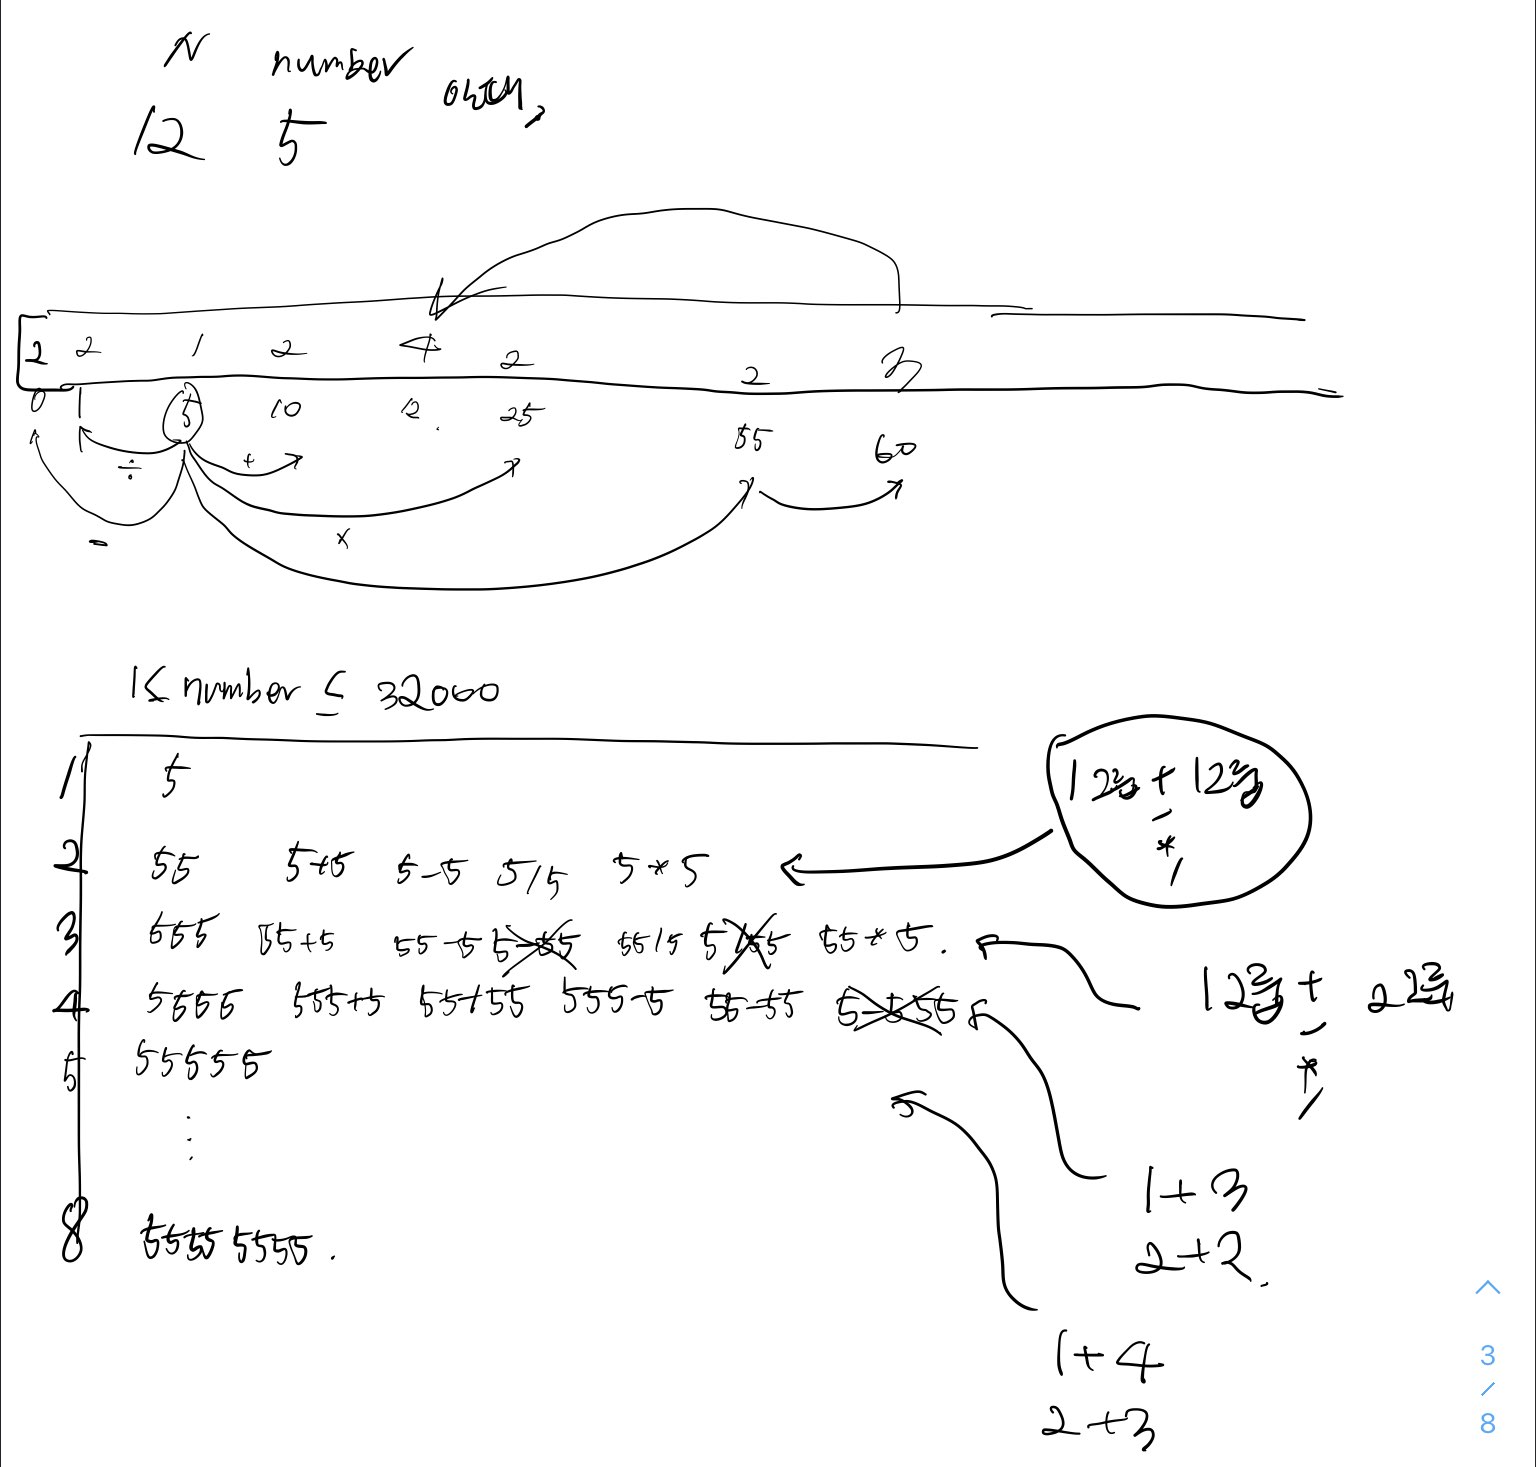 N number
12 5
2 2 1 2 4 2 2 3
0 1 5 10 12. 25 55 60
÷ + × -
1 ≤ number ≤ 32000
1 5
2 55 5+5 5-5 5/5 5*5
3 555 55+5 55-5 5-55 55/5 5/55 55*5.
4 5555 555+5 55+55 555-5 55-55 5-555
5 55555
⋮
8 55555555.
1걸 + 1걸
-
*
/
1걸 + 2걸
-
*
/
1+3
2+2.
1+4
2+3
3
/
8